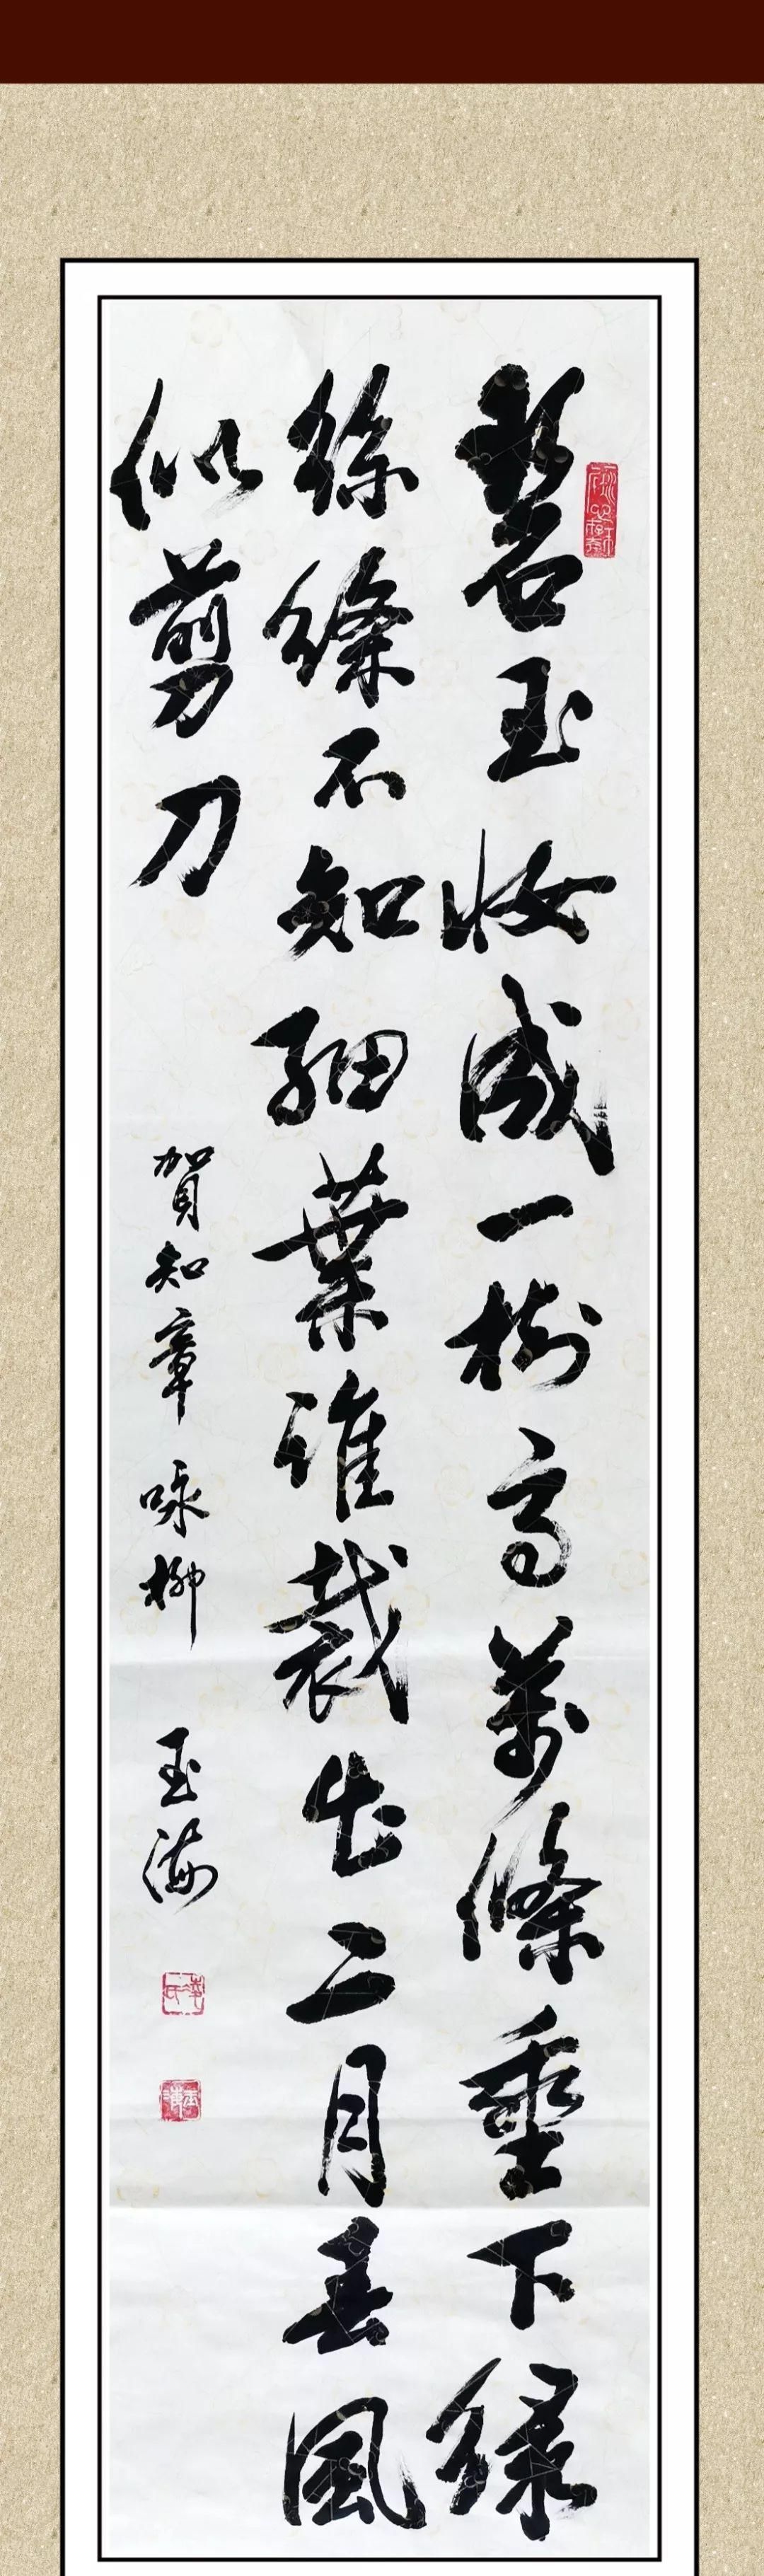 碧玉妝成一樹高萬條垂下緑
絲縧不知細葉誰裁出二月春風
似剪刀
賀知章咏柳 玉海